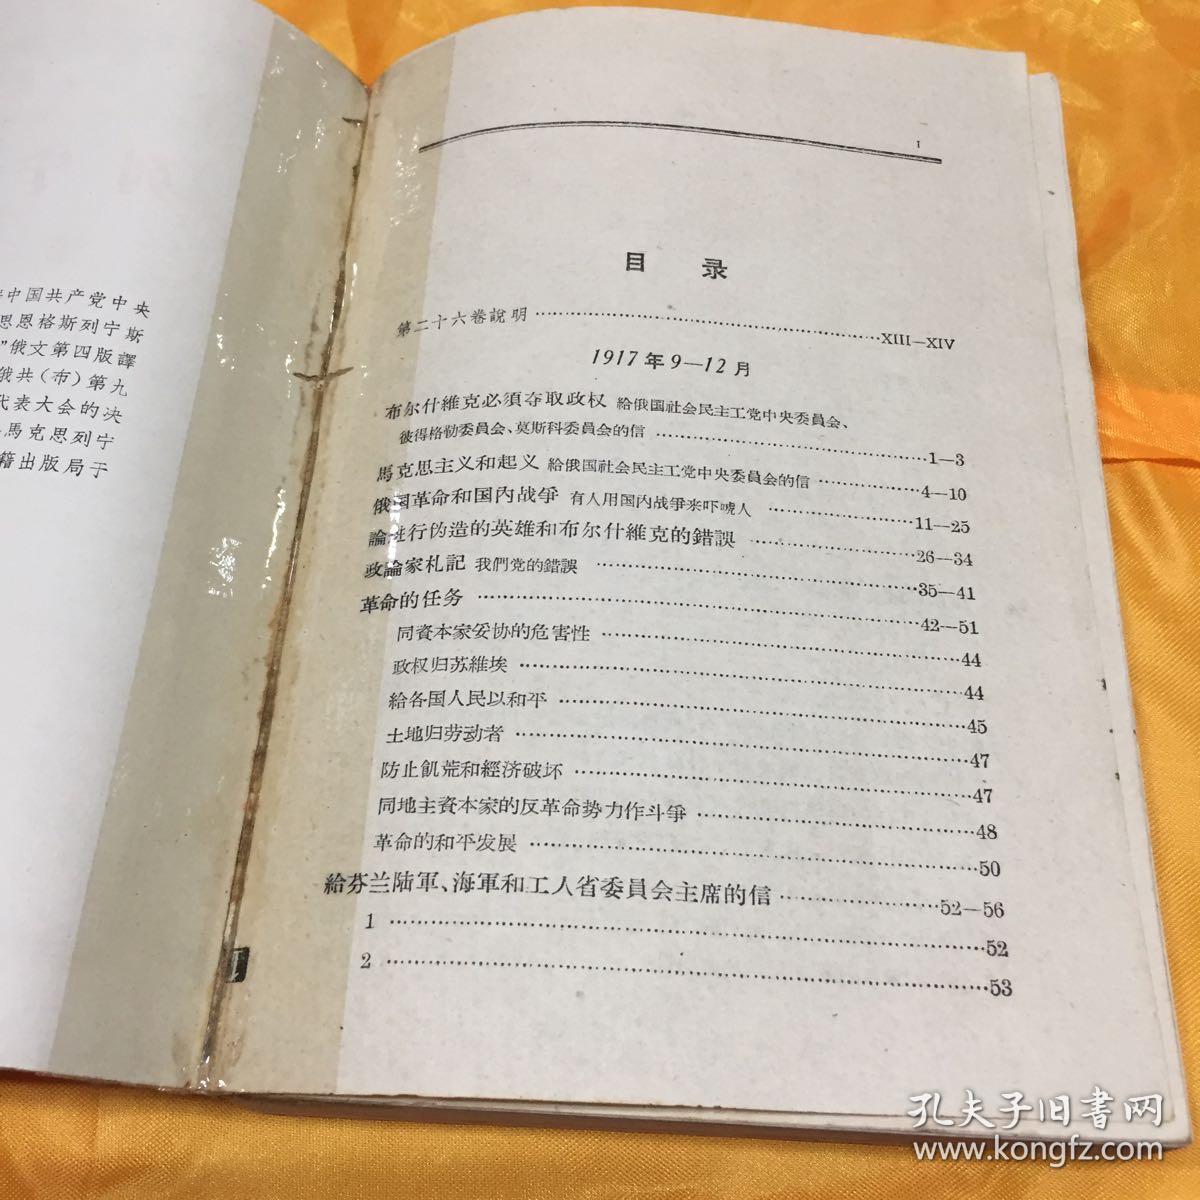 中国共产党中央
思恩格斯列宁斯
”俄文第四版譯
俄共(布)第九
代表大会的决
馬克思列宁
籍出版局于
I
目 录
第二十六卷說明 …… XIII—XIV
1917年9—12月
布尔什維克必須夺取政权 給俄国社会民主工党中央委員会、
彼得格勒委員会、莫斯科委員会的信 …… 1—3
馬克思主义和起义 給俄国社会民主工党中央委員会的信 …… 4—10
俄国革命和国內战爭 有人用国內战爭来吓唬人 …… 11—25
論进行伪造的英雄和布尔什維克的錯誤 …… 26—34
政論家札記 我們党的錯誤 …… 35—41
革命的任务 …… 42—51
同資本家妥协的危害性 …… 44
政权归苏維埃 …… 44
給各国人民以和平 …… 45
土地归劳动者 …… 47
防止飢荒和經济破坏 …… 47
同地主資本家的反革命势力作斗爭 …… 48
革命的和平发展 …… 50
給芬兰陆軍、海軍和工人省委員会主席的信 …… 52—56
1 …… 52
2 …… 53
孔夫子旧书网
www.kongfz.com